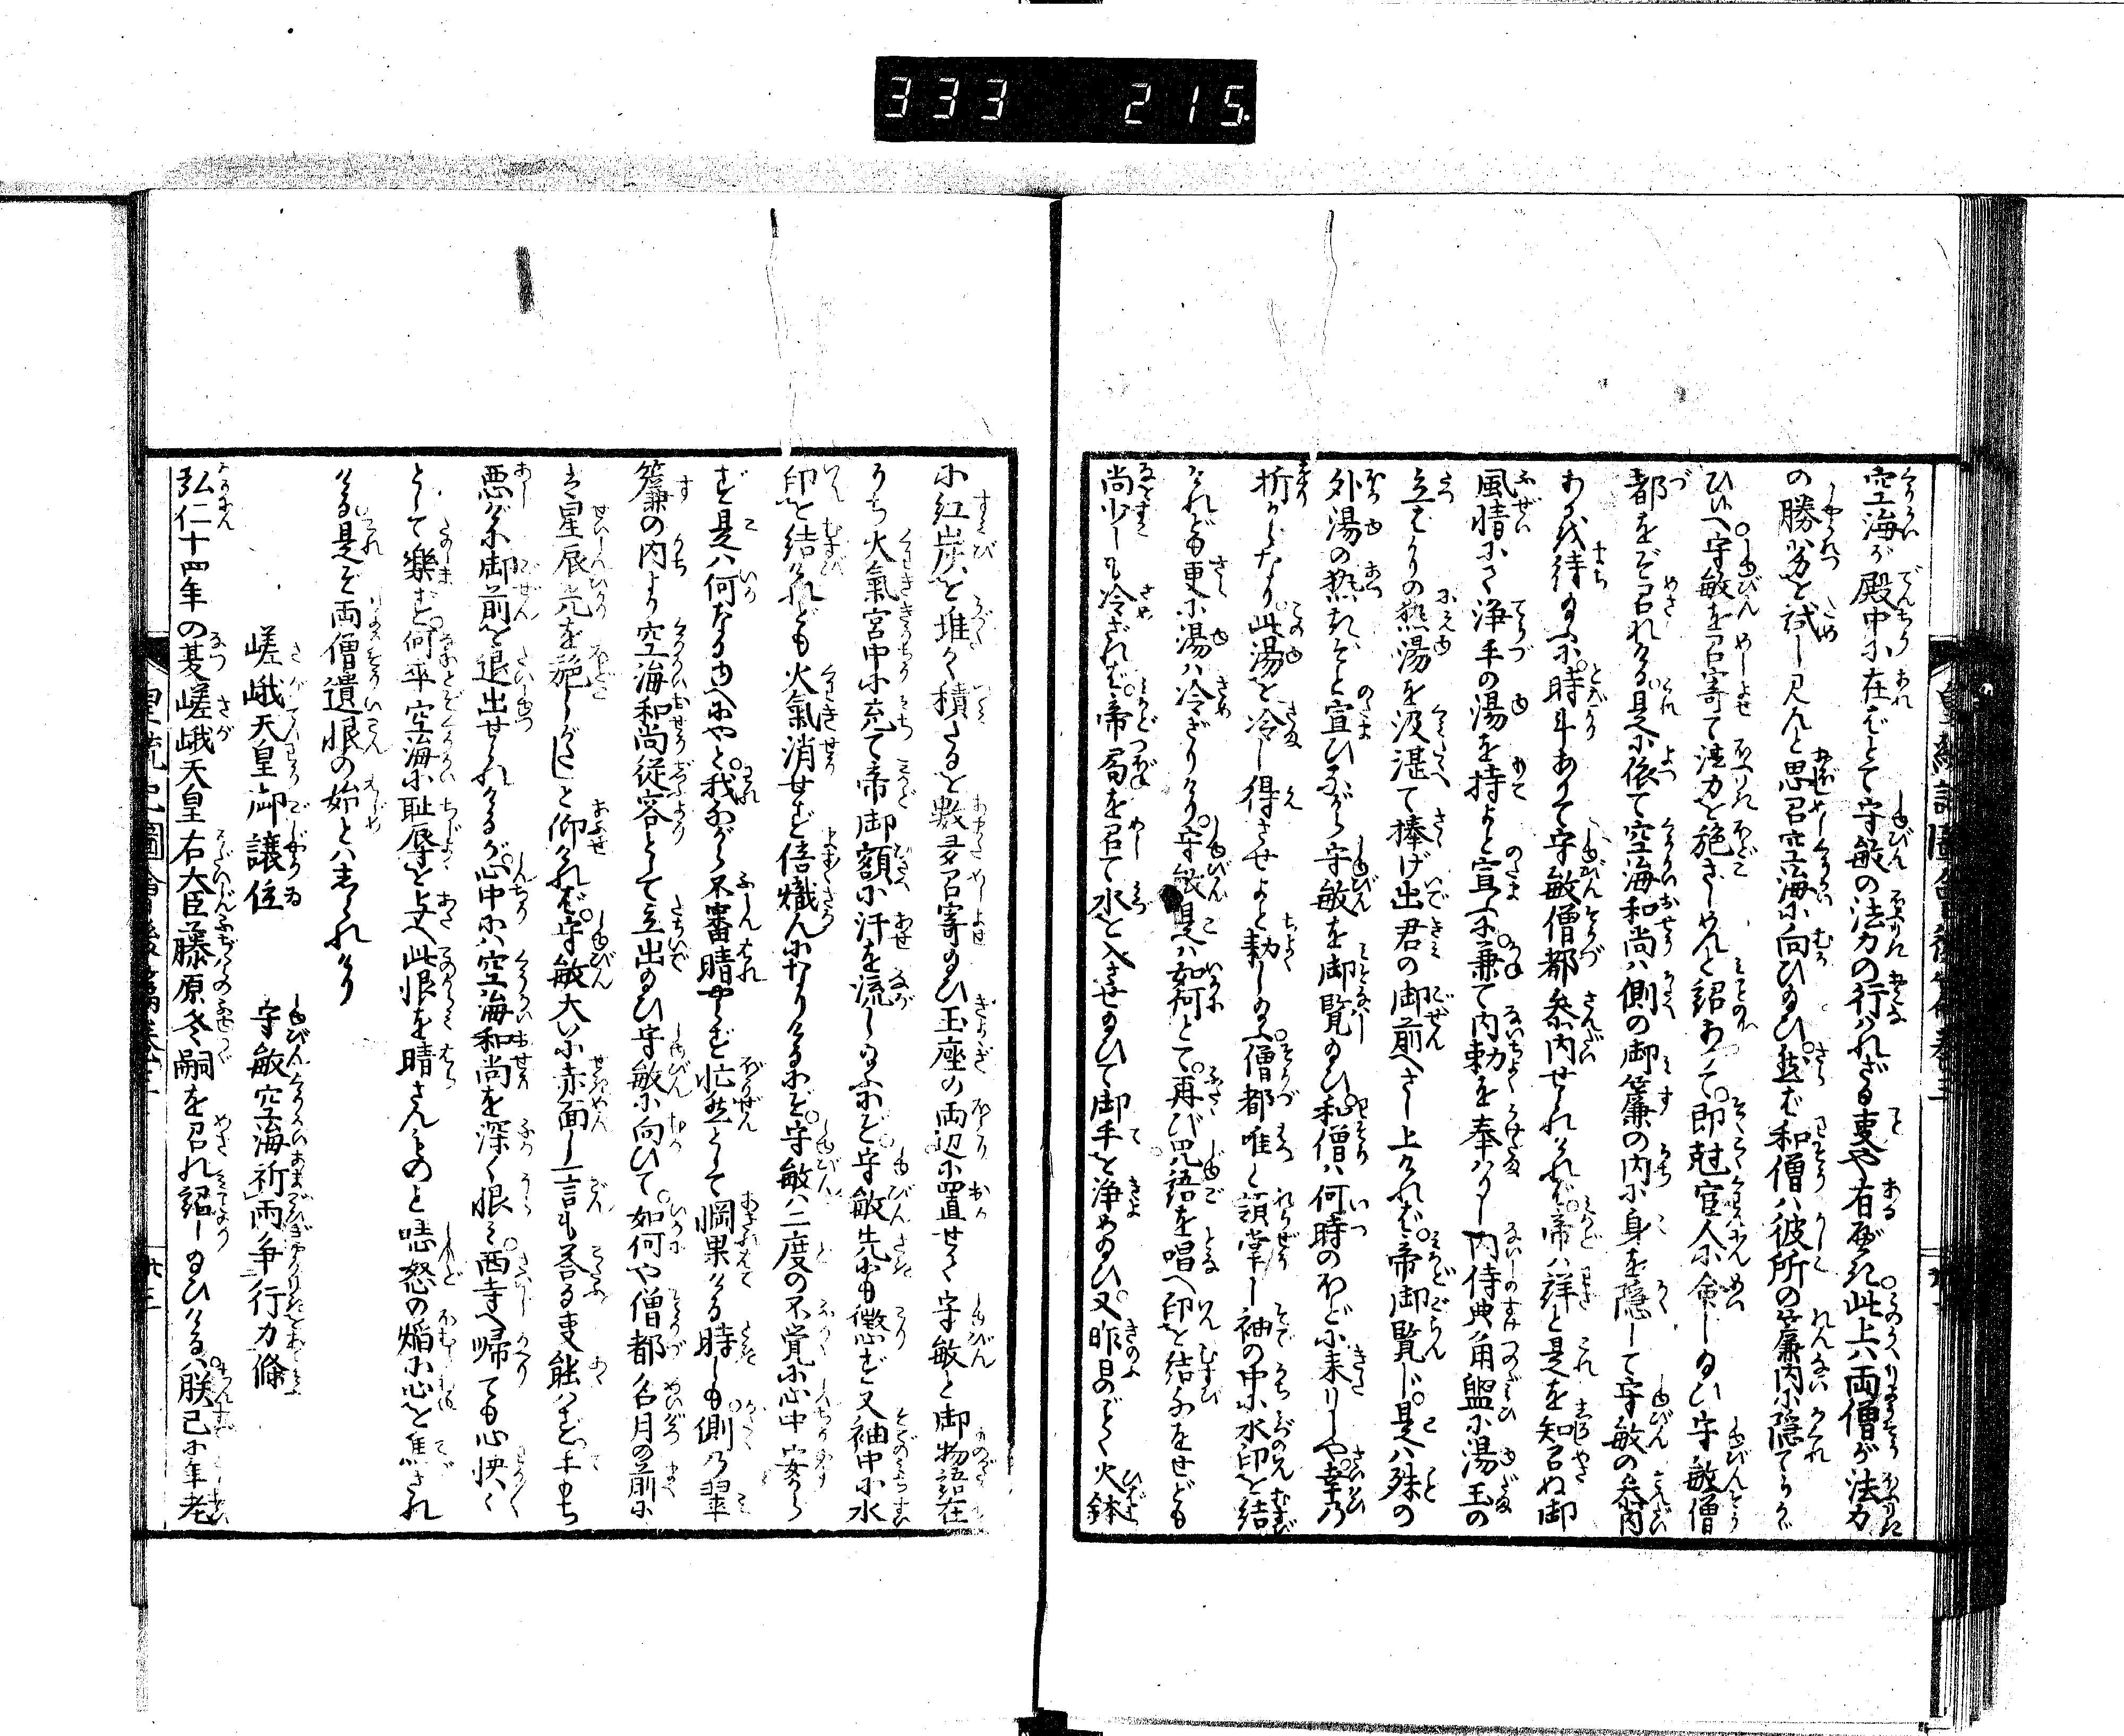 333 215.
皇統記圖會後編巻三
空海が殿中に在ばとて守敏の法力の行はれざる事や有べき此上ハ両僧が法力
の勝劣を試し見んと思召空海に向ひ給ひ然ば和僧ハ彼所の簾内に隠てうかゞ
ひ候へ守敏を召寄て法力を施さしめんと詔あつて即尅官人に命じ給ひ守敏僧
都をぞ召れける是に依て空海和尚ハ側の御簾の内に身を隠して守敏の参内
あるを待給ふに時斗ありて守敏僧都参内せられけれバ帝ハ詳と是を知召ぬ御
風情にて浄手の湯を持よと宣ふに兼て内勅を奉ハりし内侍典角盥に湯玉の
立ばかりの熱湯を汲湛て捧げ出君の御前へさし上けれバ帝御覧じ是ハ殊の
外湯の熱きぞと宣ひながら守敏を御覧給ひ和僧ハ何時のほどに来りしや幸の
折からなり此湯を冷し得させよと勅し給ふ僧都唯と領掌し袖の中に水印を結
けれども更に湯ハ冷ざりけり守敏是ハ如何とて再び咒語を唱へ印を結ふをせども
尚少しも冷ざれバ帝局を召て水を入させ給ひて御手を浄め給ひ又昨日のごとく火鉢
に紅炭を堆く積たるを數多召寄給ひ玉座の両辺に置せて守敏と御物語在
うち火氣宮中に充て帝御額に汗を流し給ふにぞ守敏先にも懲ず又袖中に水
印を結けれども火氣消せず倍熾んになりけるにぞ守敏ハ二度の不覚に心中安から
ず是ハ何なるゆへにやと我ながら不審晴やらず忙然として惘果ける時しも側の翠
簾の内より空海和尚従容として立出給ひ守敏に向ひて如何や僧都名月の前に
ハ星辰光を施しがたしと仰けれバ守敏大いに赤面し一言も答る事能はず手もち
悪げに御前を退出せられけるが心中にハ空海和尚を深く恨み西寺へ帰ても心怏々
として樂まず何卒空海に耻辱を与へ此恨を晴さんものと嗔怒の焔に心を焦され
ける是ぞ両僧遺恨の始とハしられけり
嵯峨天皇御譲位　守敏空海祈雨争行力條
弘仁十四年の夏嵯峨天皇右大臣藤原冬嗣を召れ詔し給ひけるハ朕已に年老
皇統記圖會後編巻三